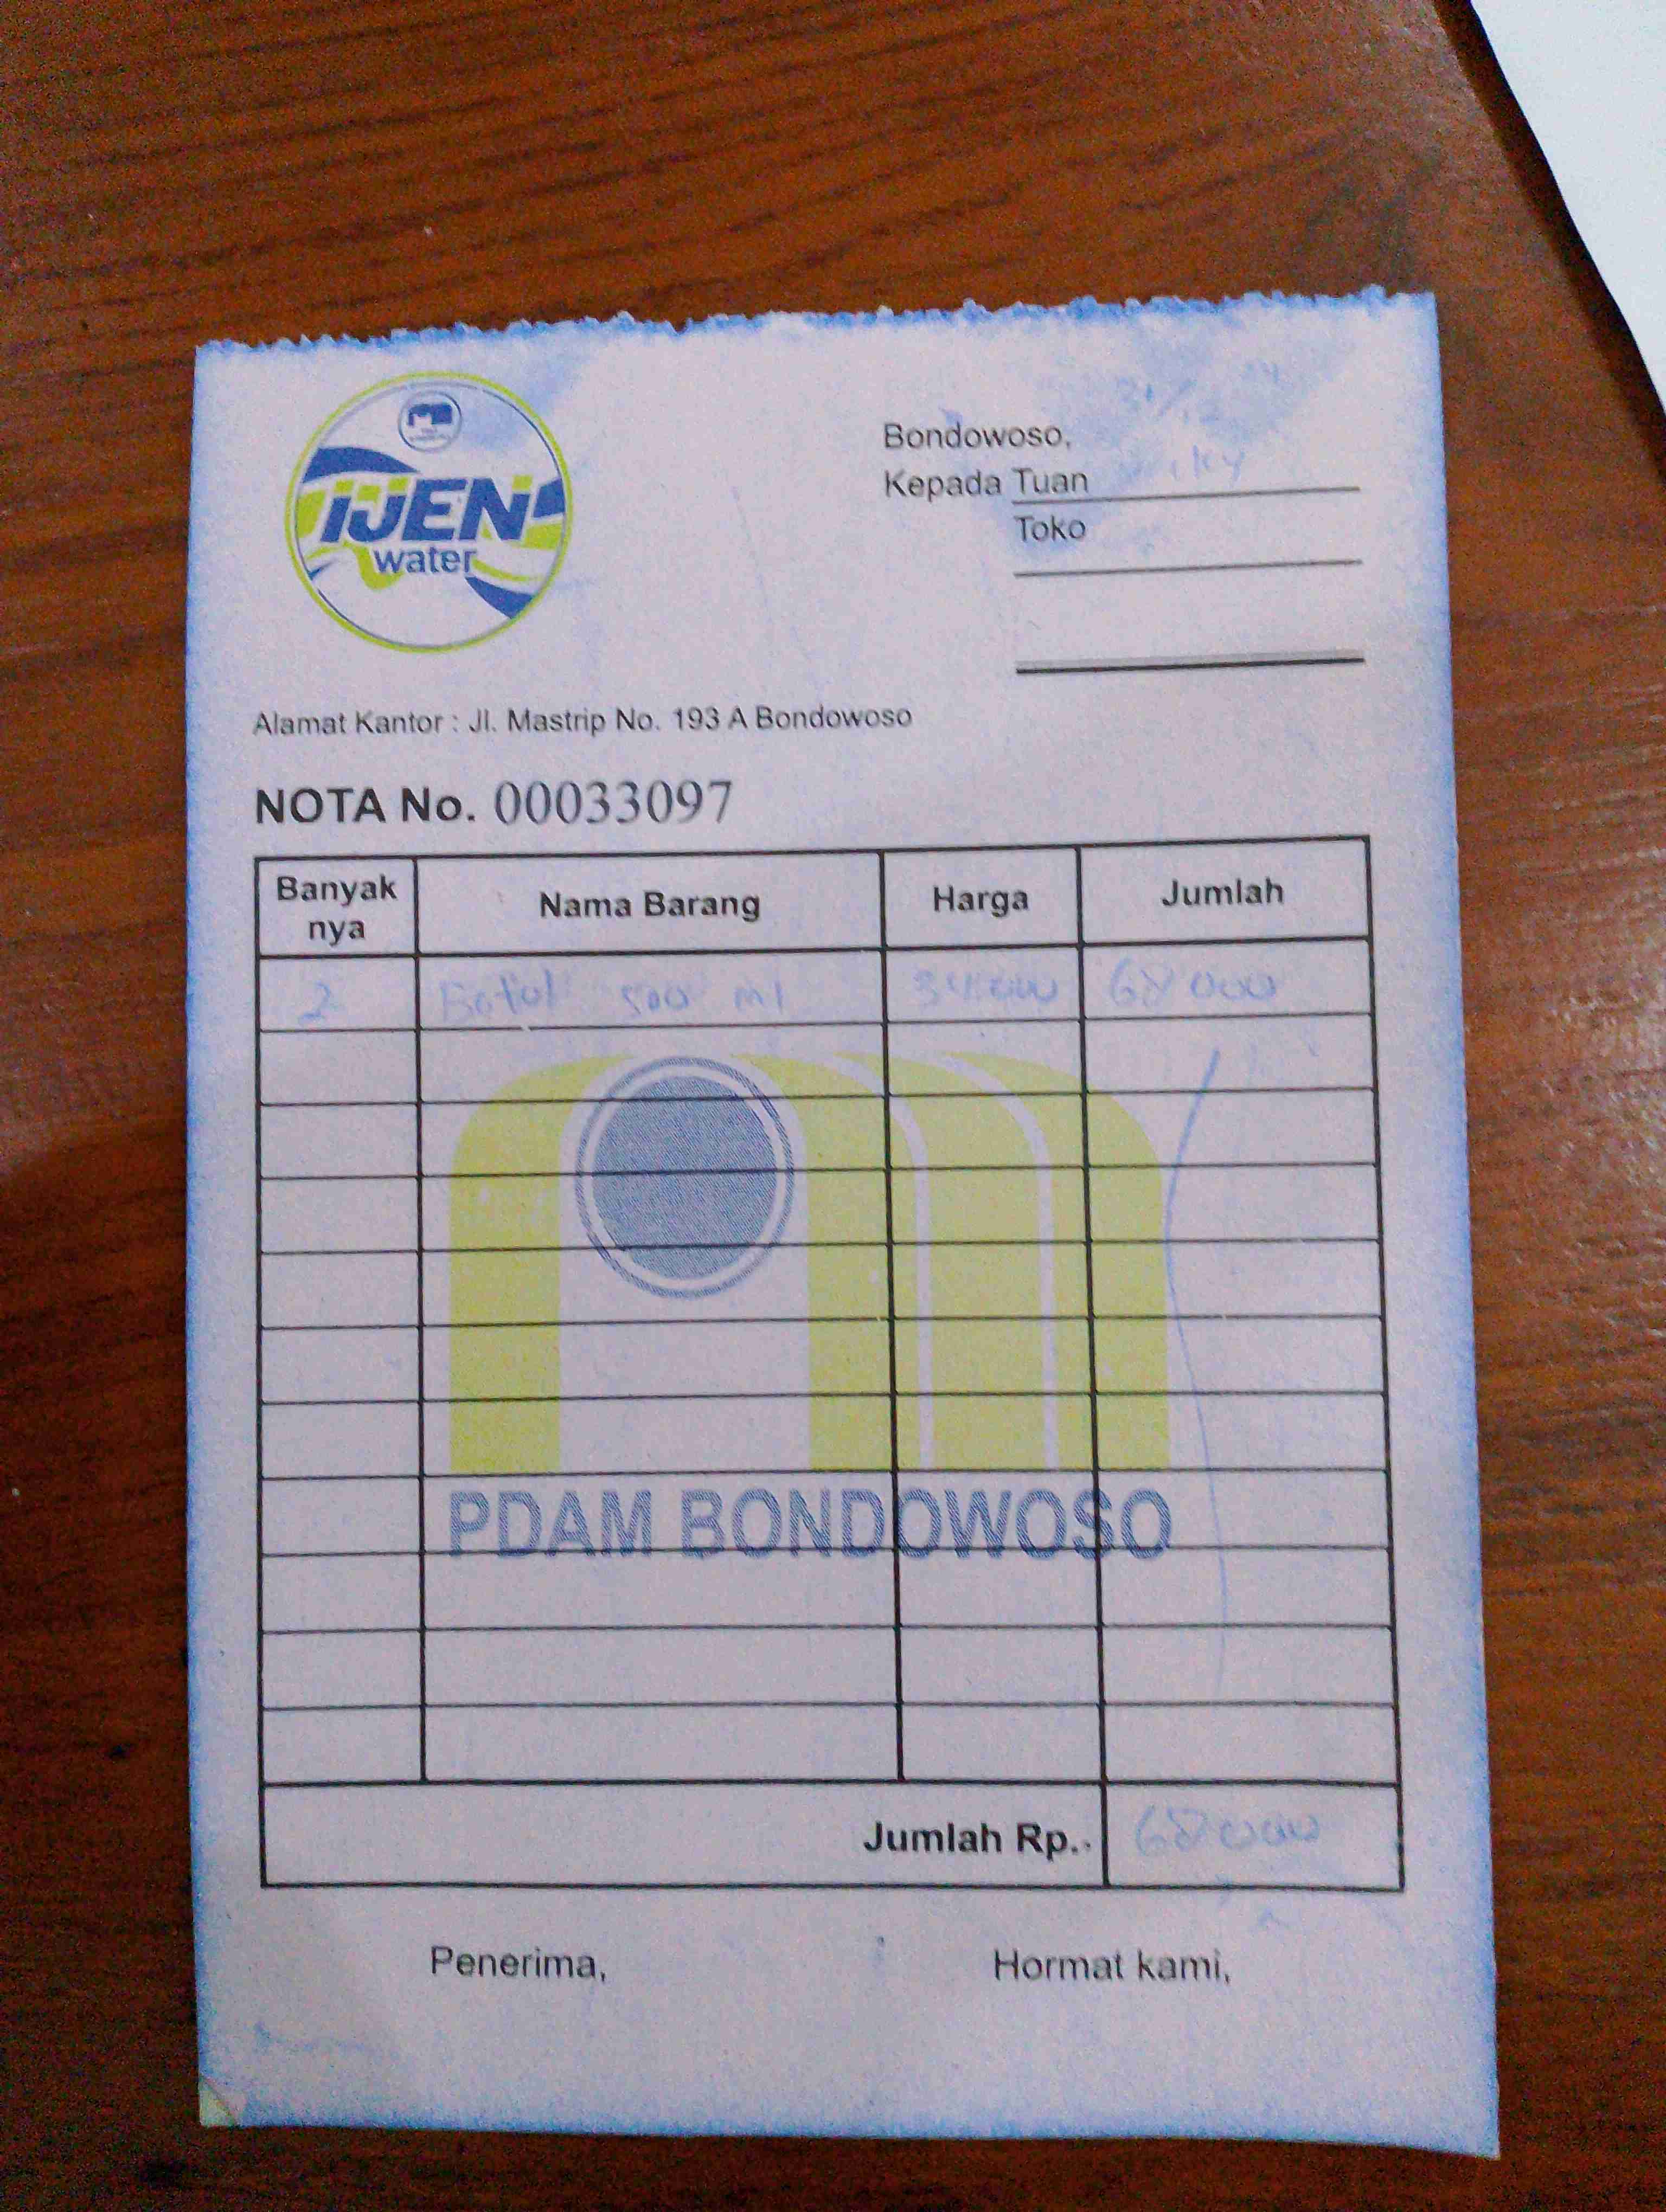 IJEN
water
Bondowoso, 31/12
Kepada Tuan
Toko
Alamat Kantor : Jl. Mastrip No. 193 A Bondowoso
NOTA No. 00033097
Banyak nya Nama Barang Harga Jumlah
2 Botol 500 ml 34.000 68 000
PDAM BONDOWOSO
Jumlah Rp.. 68 000
Penerima, Hormat kami,